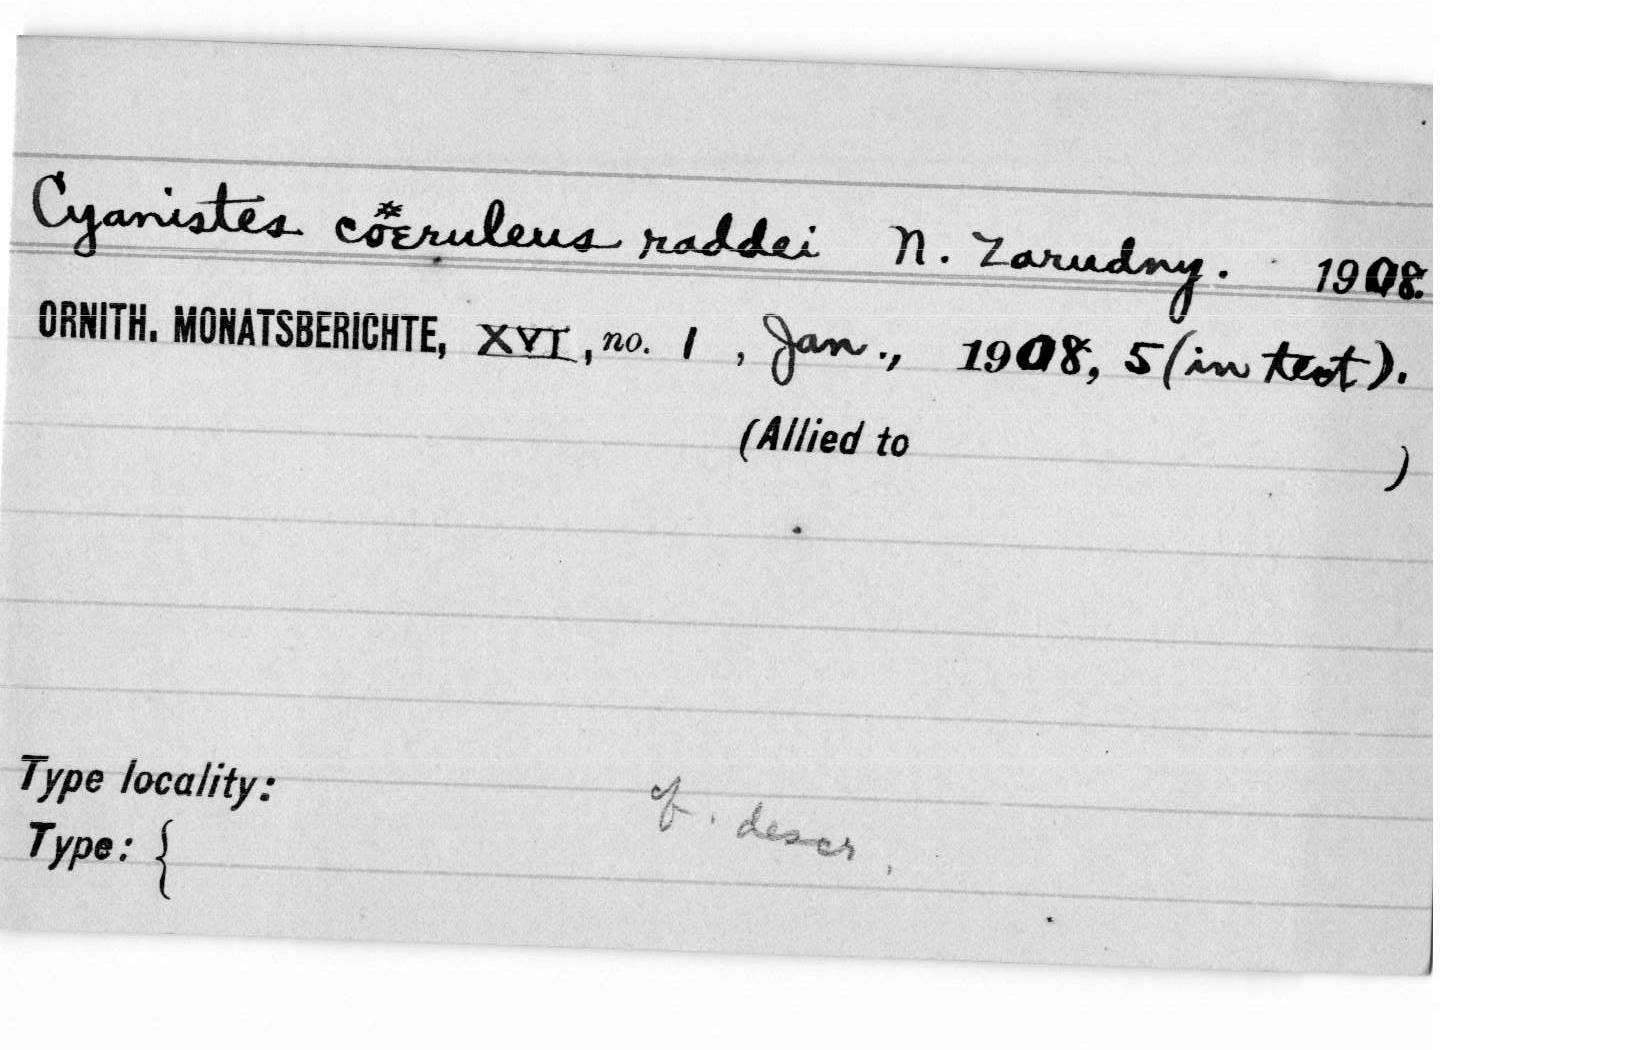 Cyanistes cœruleus raddei N. Zarudny. 1908.
ORNITH. MONATSBERICHTE, XVI, no. 1, Jan., 1908, 5 (in text).
(Allied to )
Type locality:
cf. descr.
Type: {